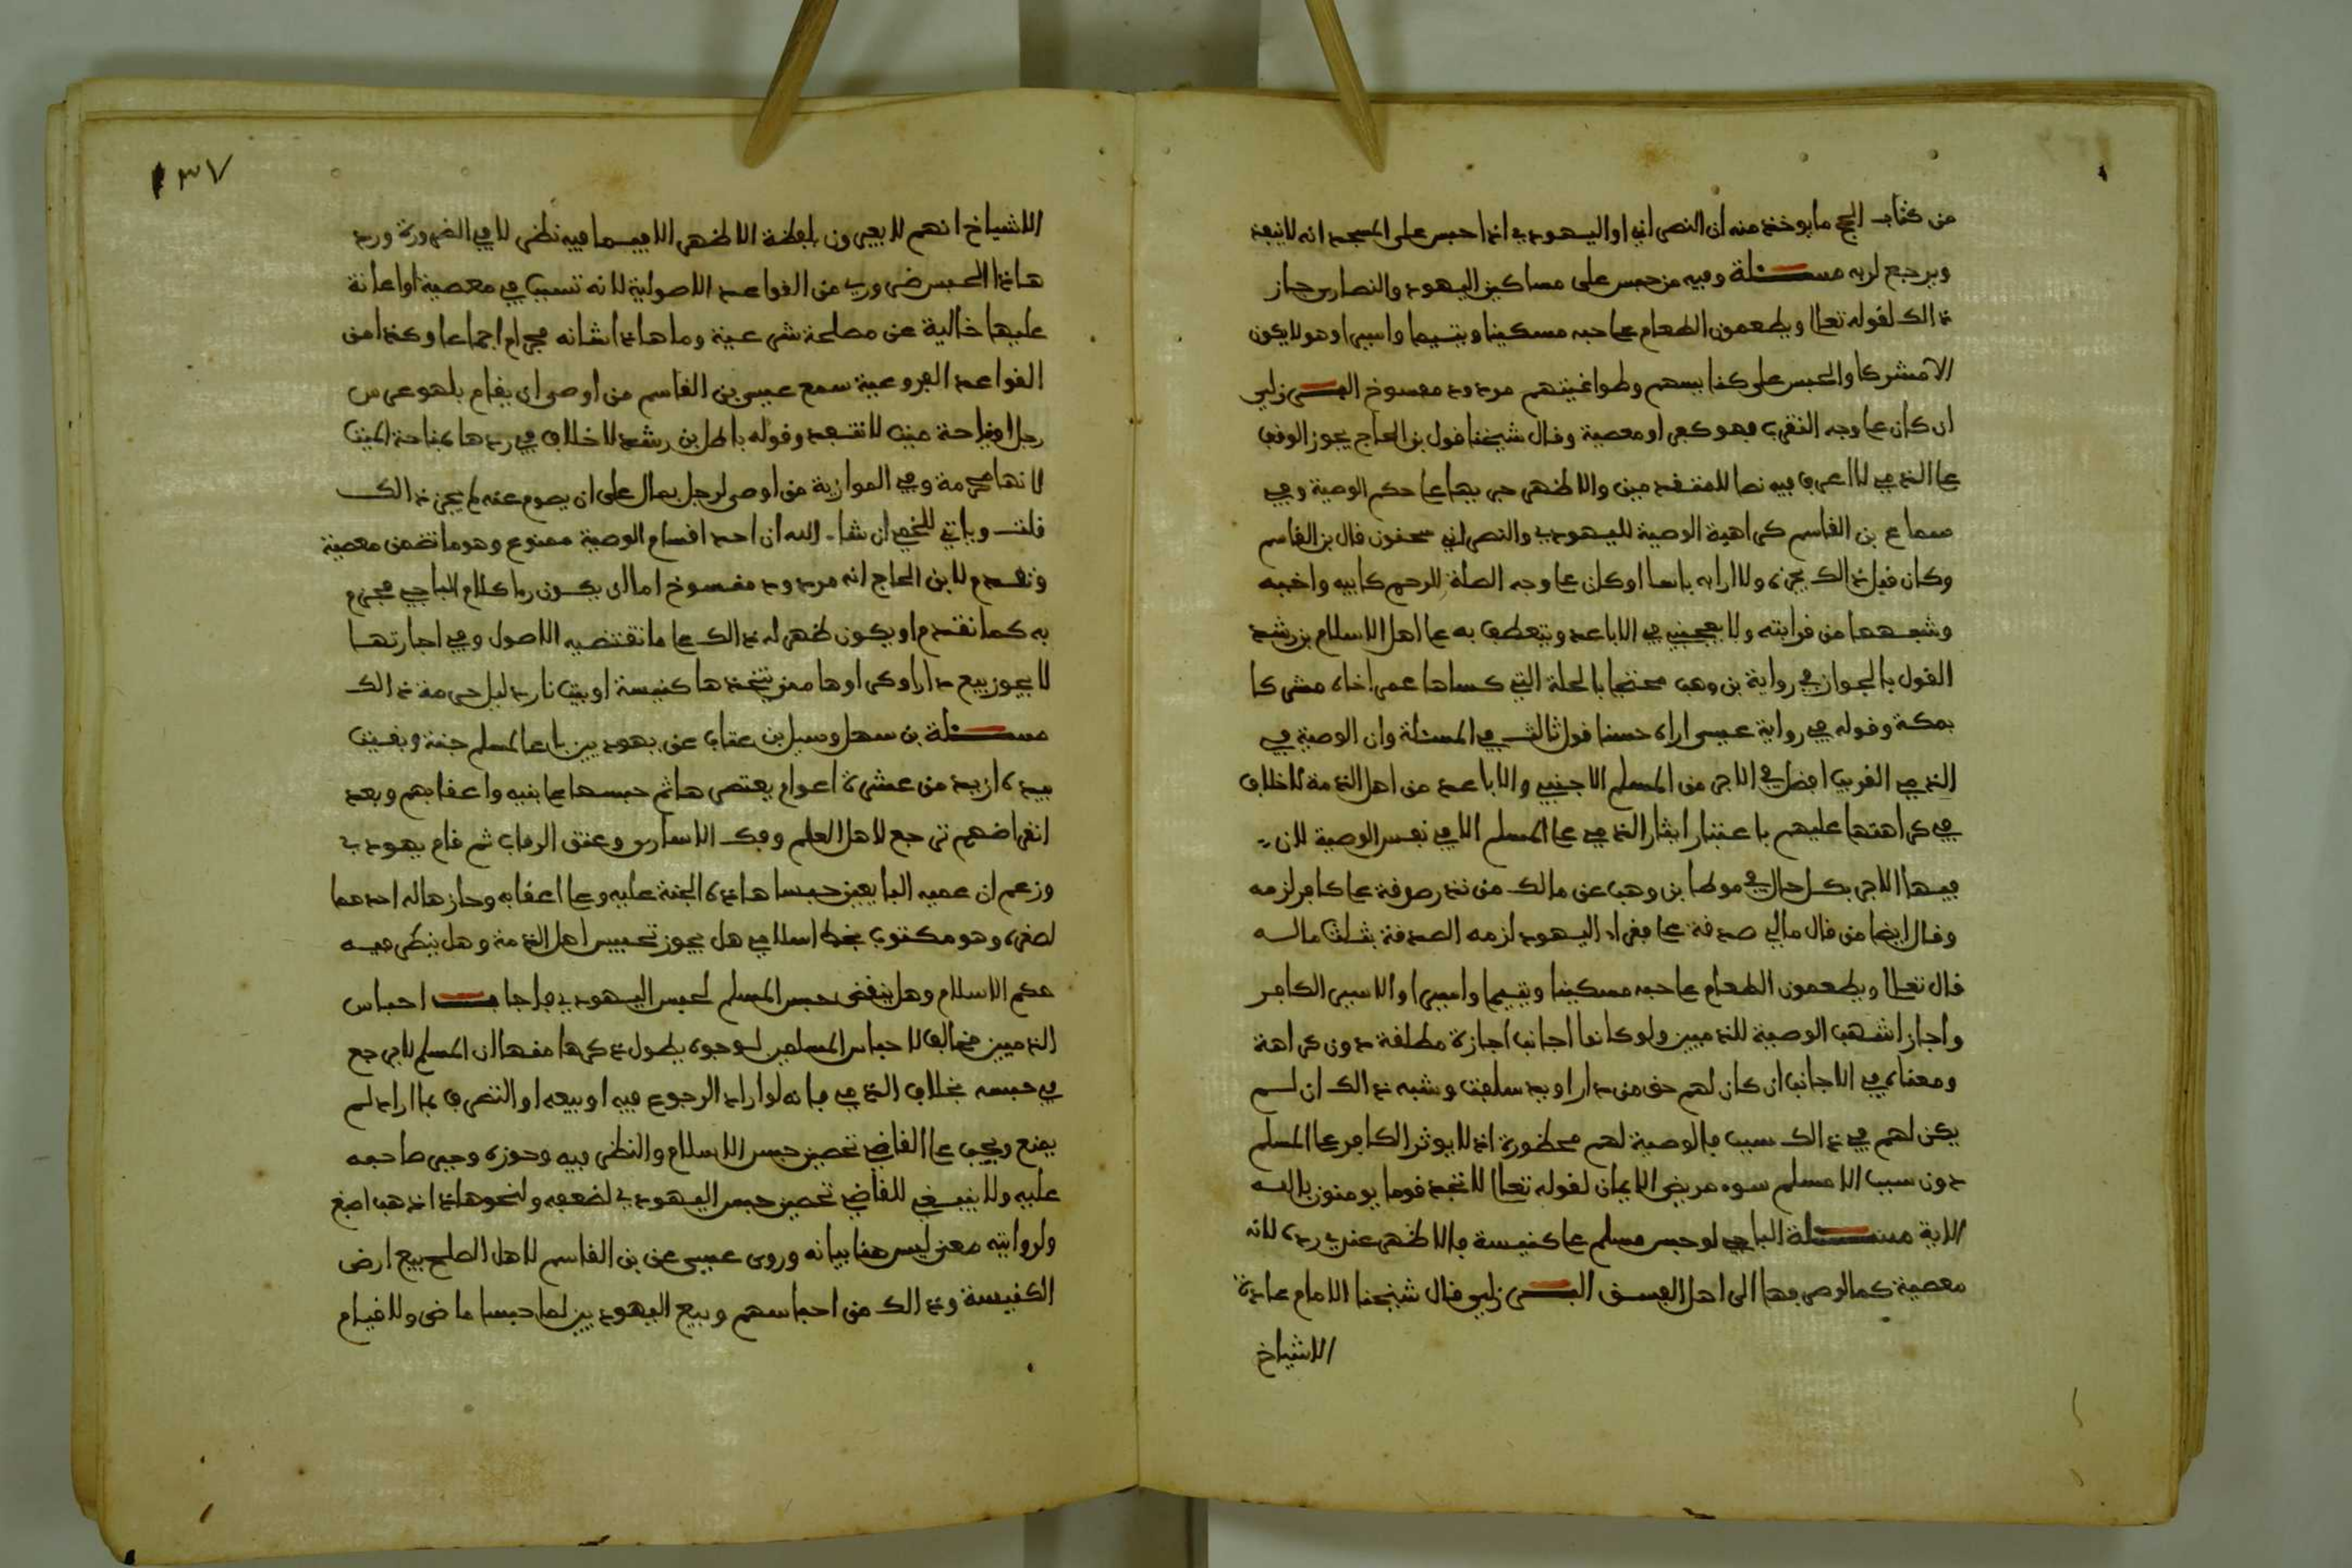 من كتاب الحج ما يوخذ منه ان النصراني او اليهودي اذا حبس على المسجد انه لا ينفذ
ويرجع لربه مسئلة وفيه من حبس على مساكين اليهود والنصارى جاز
ذالك لقوله تعالى ويطعمون الطعام على حبه مسكينا ويتيما واسيرا وهو لا يكون
الا مشركا والحبس على كنايسهم وطواغيتهم مردود مفسوخ البرزلي
ان كان على وجه التقرب فهو كفر او معصية وقال شيخنا قول بن الحاج يجوز الوقف
على الذمي لا اعرف فيه نصا للمتقدمين والاظهر جريها على حكم الوصية وفي
سماع بن القاسم كراهية الوصية لليهودي والنصراني سحنون قال بن القاسم
وكان قبل ذالك يجيزه ولا ارى به باسا اذا كان على وجه الصلة للرحم كابيه واخيه
وشبههما من قرابته ولا يعجبني في الاباعد ويتعطف به على اهل الاسلام بن رشد
القول بالجواز في رواية بن وهب محتجا بالحلة التي كساها عمر اخاه مشركا
بمكة وقوله في رواية عيسى اراه حسنا قول ثالث في المسئلة وان الوصية في
الذمي القريب افضل في الاجر من المسلم الاجنبي والاباعد من اهل الذمة لا خلاف
في كراهتها عليهم باعتبار ايثار الذمي على المسلم لا في نفس الوصية لان
فيها الاجر بكل حال في موطا بن وهب عن مالك من نذر صدقة على كافر لزمه
وقال ايضا من قال مالي صدقة على فقراء اليهود لزمه الصدقة بثلث ماله
قال تعالى ويطعمون الطعام على حبه مسكينا ويتيما واسيرا والاسير الكافر
واجاز اشهب الوصية للذميين ولو كانوا اجانب اجازة مطلقة دون كراهة
ومعناه في الاجانب ان كان لهم حق من جار او يد سلفت وشبه ذالك ان لم
يكن لهم في ذالك سبب فالوصية لهم محظورة اذ لا يوثر الكافر على المسلم
دون سبب الا مسلم سوء مريض الايمان لقوله تعالى لا تجد قوما يومنون بالله
الاية مسئلة الباجي لو حبس مسلم على كنيسة فالاظهر عندي رده لانه
معصية كما لو صرفها الى اهل الفسق البرزلي قال شيخنا الامام عادة
الاشياخ
١٣٧
الاشياخ انهم لا يعبرون بلفظة الاظهر الا فيما فيه نظر لا في الضرورة ورد
هاذا الحبس ضروري من القواعد الاصولية لانه تسبب في معصية او اعانة
عليها خالية عن مصلحة شرعية وما هاذا شانه محرم اجماعا وكذا من
القواعد الفروعية سمع عيسى بن القاسم من اوصى ان يقام بلهو عرس
رجل او نياحة ميت لا تنفذ وقوله باطل بن رشد لا خلاف في ردها بمناحة الميت
لانها محرمة وفي الموازية من اوصى لرجل بمال على ان يصوم عنه لم يجز ذالك
قلت وياتي للخمي ان شاء الله ان احد اقسام الوصية ممنوع وهو ما تضمن معصية
وتقدم لابن الحاج انه مردود مفسوخ اما ان يكون رءا كلام الباجي محرم
به كما تقدم او يكون ظهر له ذالك على ما تقتضيه الاصول وفي اجارتها
لا يجوز بيع دار او كراوها ممن يتخذها كنيسة او بيت نار دليل حرمة ذالك
مسئلة بن سهل وسيل بن عتاب عن يهوديين باعا لمسلم جنة وبقيت
بيده ازيد من عشرة اعوام يعتمرها ثم حبسها على بنيه واعقابهم وبعد
انقراضهم ترجع لاهل العلم وفك الاسارى وعتق الرقاب ثم قام يهودي
وزعم ان عميه البايعين حبسا هاذه الجنة عليه وعلى اعقابه وحازها له احدهما
لصغره وهو مكتوب بخط اسلامي هل يجوز تحبيس اهل الذمة وهل ينظر فيه
حكم الاسلام وهل ينقض حبس المسلم لحبس اليهودي فاجاب احباس
الذميين مخالف لاحباس المسلمين لوجوه يطول ذكرها منها ان المسلم لا يرجع
في حبسه بخلاف الذمي فانه لو اراد الرجوع فيه او بيعه او التصرف بما اراد لم
يمنع ويجب على القاضي تحصين حبس الاسلام والنظر فيه وحوزه وجبر صاحبه
عليه ولا ينبغي للقاضي تحصين حبس اليهودي لضعفه ولنحو هاذا ذهب اصبغ
ولروايته معنى ليس هنا بيانه وروى عيسى عن بن القاسم لاهل الصلح بيع ارض
الكنيسة وذالك من احباسهم وبيع اليهوديين لما حبسا ماض ولا قيام